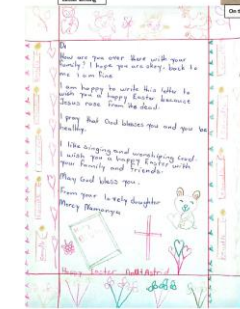 Hi
How are you over there with your
family? I hope you are okay. back to
me I am fine
I am happy to write this letter to
wish you a happy Easter because
Jesus rose from the dead.
I pray that God blesses you and you be
healthy.
I like singing and worshiping God.
I wish you a happy Easter with
your family and friends.
May God bless you.
From your lovely daughter
Mercy
Happy Easter